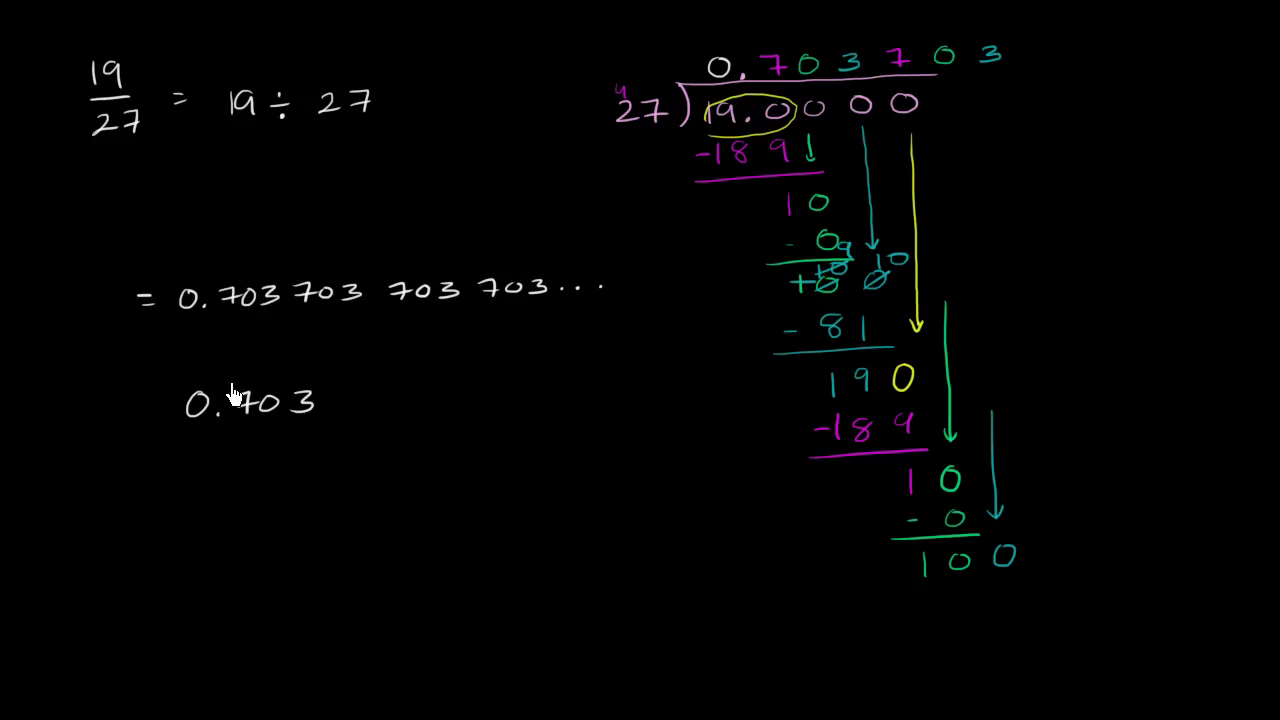 19/27 = 19 ÷ 27
= 0.703 703 703 703...
0.703
0.703703
4
27)19.0000
-189
10
- 0
9
10 10
100
- 81
190
-189
10
- 0
100